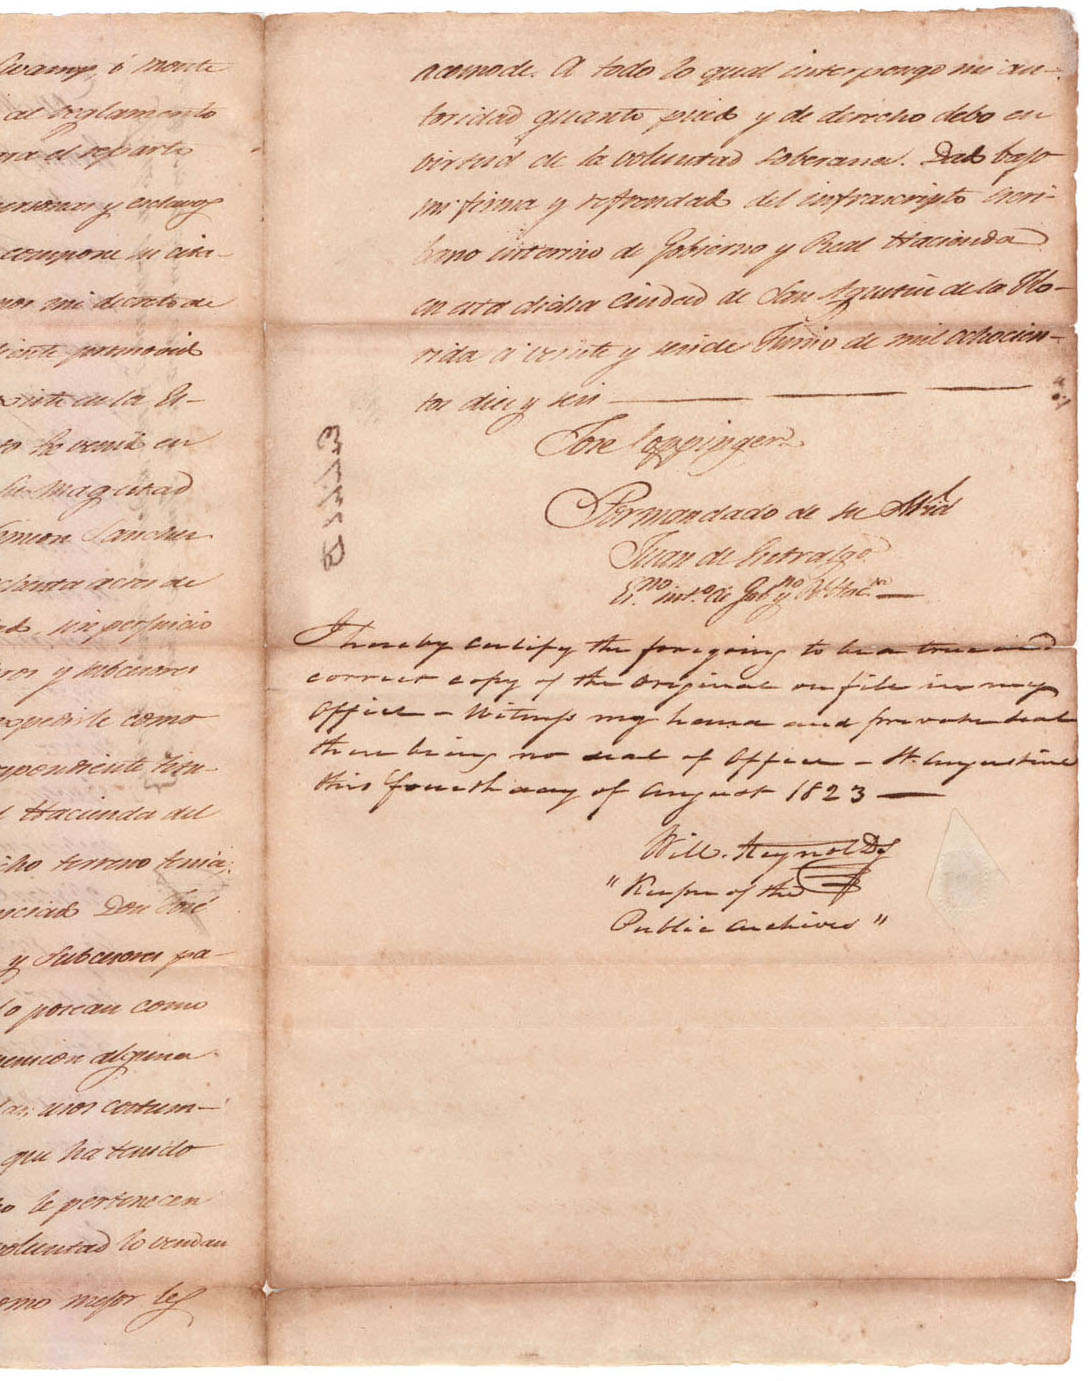 Swamp, ó monte
al reglamento
para el reparto
personas y esclavos
compone su cita-
mi decreto de
promovido
en la Es-
se venido en
Su Magestad
Simeon Sanchez
acres de
sin perjuicio
y subcesores
como
titu-
Hacienda del
dicho terreno tenia;
Don José
y Subcesores pa-
lo posean como
alguna
usos costum-
que ha tenido
le pertenecen
voluntad lo vendan
como mejor les
acomode. A todo lo qual interpongo mi au-
toridad quanto puedo y de derecho debo en
virtud de la voluntad soberana. Dado bajo
mi firma y refrendado del infrascripto escri-
bano interino de Gobierno y Real Hacienda
en esta dicha Ciudad de San Agustin de la Flo-
rida á veinte y seis de Junio de mil ochocien-
tos diez y seis
Jose Coppinger
Por mandado de su Srid
Juan de Entralgo
Esno. into. de Gobno. y Rl. Hacda.
I hereby certify the foregoing to be a true and
correct copy of the original on file in my
Office - Witness my hand and private seal
there being no seal of Office - St. Augustine
this fourth day of August 1823
Will. Reynolds
"Keeper of the
Public Archives"